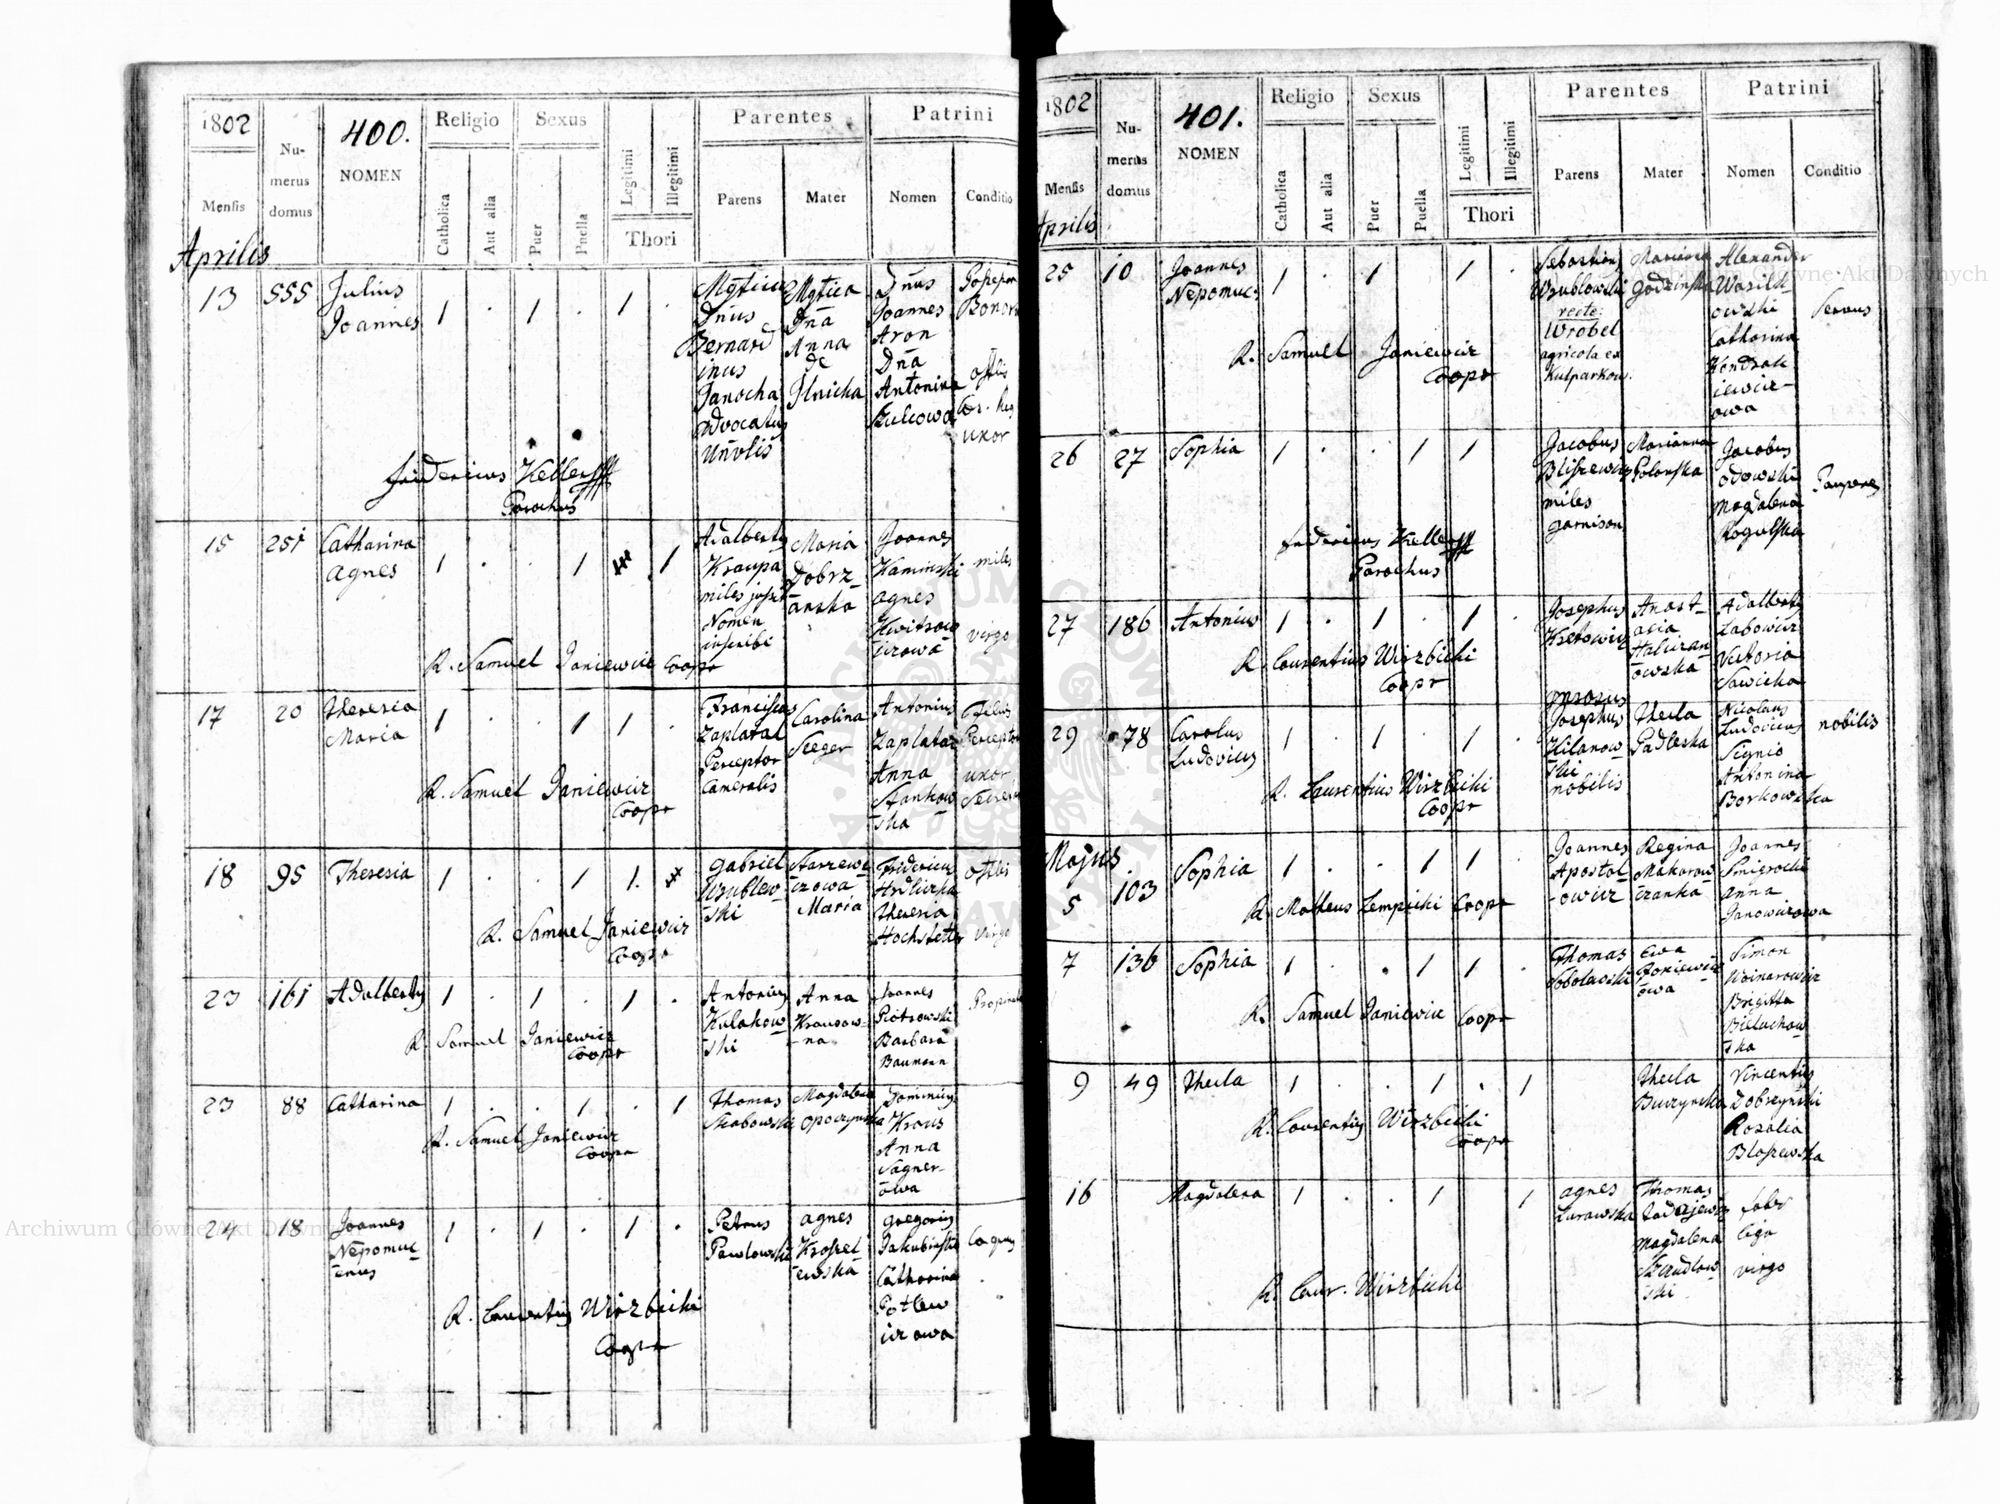 1802
Numerus domus
400.
NOMEN
Religio
Sexus
Parentes
Patrini
Mensis
Catholica
Aut alia
Puer
Puella
Legitimi
Illegitimi
Thori
Parens
Mater
Nomen
Conditio
Aprilis
13 555 Julius Joannes 1 . 1 . 1 .
Dnus
Bernard
inus
Janocha
Advocatus
Dna
Anna
de
Ilnicka
Dnus
Joannes
Aron
Dna
Antonina
Szulcowa
uxor
Fridericus Keller
Parochus
15 251 Catharina Agnes 1 . . 1 1
Adalbertus
Kraupa
miles
Nomen
inscribi
Maria
Dobrz
anska
Joannes
Kaminski
Agnes
miles
virgo
R. Samuel Janiewicz Coopr
17 20 Theresia Maria 1 . . 1 1 .
Franciscus
Zaplatal
Perceptor
Cameralis
Carolina
Seeger
Antonius
Zaplatal
Anna
Stankow
ska
uxor
R. Samuel Janiewicz
Coopr
18 95 Theresia 1 . . 1 1.
Gabriel
Wrublew
ski
Starzewi
czowa
Maria
Fridericus
Theresia
Hochstetter
virgo
R. Samuel Janiewicz
Coopr
23 161 Adalbertus 1 . 1 . 1 .
Antonius
Kulakow
ski
Anna
Krausow
na
Joannes
Piotrowski
Barbara
Baumann
R. Samuel Janiewicz
Coopr
23 88 Catharina 1 . . 1 . 1
Thomas
Skabowski
Magdalena
Opoczynska
Dominicus
Kraus
Anna
Sagner
owa
R. Samuel Janiewicz
Coopr
24 18 Joannes Nepomuc
enus 1 . 1 . 1 .
Petrus
Pawlowski
Agnes
Kroszel
ewska
Gregorius
Jakubinski
Catharina
Potlew
iczowa
Coquus
R. Laurentius Wirzbicki
Coopr
1802
Numerus domus
401.
NOMEN
Religio
Sexus
Parentes
Patrini
Mensis
Catholica
Aut alia
Puer
Puella
Legitimi
Illegitimi
Thori
Parens
Mater
Nomen
Conditio
Aprilis
25 10 Joannes Nepomuc: 1 . 1 1 .
Sebastian
Wrublowski
recte:
Wrobel
agricola ex
Kulparkow.
Marianna
Godzinska
Alexander
Wasilk
owski
Catharina
Kondrak
iewicz
owa
Servus
R. Samuel Janiewicz
Coopr
26 27 Sophia 1 . . 1 1
Jacobus
Bliszewicz
miles
garnison
Marianna
Polanska
Jacobus
Odowski
Magdalena
Rogulska
Pauperes
Fridericus Keller
Parochus
27 186 Antonius 1 . 1 . 1 .
Josephus
Kretowicz
Anast
asia
Haliczan
owska
Adalbertus
Labowicz
Victoria
Sawicka
R. Laurentius Wirzbicki
Coopr
29 78 Carolus Ludovicus 1 . 1 . 1 .
Josephus
Kilanow
ski
nobilis
Thecla
Padleska
Nicolaus
Ludovicus
Signio
Antonina
Borkowska
nobilis
R. Laurentius Wirzbicki
Coopr
Majus
5 103 Sophia 1 . . 1 1 .
Joannes
Apostol
owicz
Regina
Makarow
czanka
Joannes
Smigrocki
Anna
Janowiczowa
R. Matheus Zempicki Coopr
7 136 Sophia 1 . . 1 1 .
Thomas
Sobolewski
Ewa
Simon
Woinarowicz
Brigitta
Bieluchow
ska
R. Samuel Janiewicz Coopr
9 49 Thecla 1 . . 1 . 1
Thecla
Buczynska
Vincentius
Dobrzynski
Rosalia
Blaszewska
R. Laurentius Wirzbicki
Coopr
16 Magdalena 1 . . 1 1
Agnes
Zurawska
Thomas
Magdalena
Szczudlow
ski
faber
virgo
R. Laur. Wirzbicki
Archiwum Główne Akt Dawnych
Archiwum Główne Akt Dawnych
ARCHIWUM GŁÓWNE AKT DAWNYCH